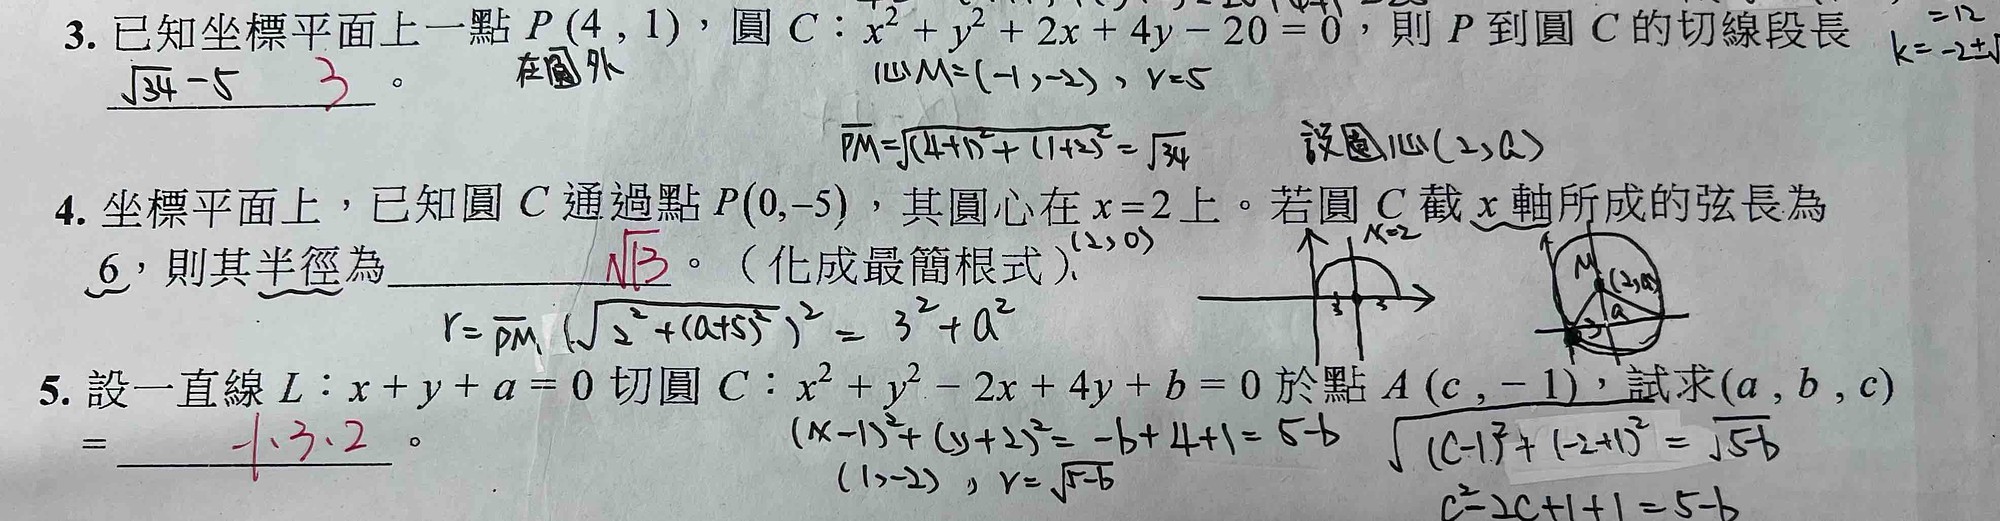 3. 已知坐標平面上一點 P (4 , 1)，圓 C：x² + y² + 2x + 4y − 20 = 0，則 P 到圓 C 的切線段長
=12
k=-2±√
√34 -5 3 。
在圓外
心M=(-1,-2), r=5
PM=√(4+1)²+(1+2)² = √34
設圓心(2,a)
4. 坐標平面上，已知圓 C 通過點 P(0,−5)，其圓心在 x=2 上。若圓 C 截 x 軸所成的弦長為
6，則其半徑為 √13 。（化成最簡根式）
(2,0)
x=2
3 3
M (2,a)
3 a
r=PM (√2²+(a+5)²)² = 3²+a²
5. 設一直線 L：x + y + a = 0 切圓 C：x² + y² − 2x + 4y + b = 0 於點 A (c , − 1)，試求(a , b , c)
= -1、3、2 。
(x-1)²+(y+2)²=-b+4+1=5-b
√(c-1)²+(-2+1)² = √5-b
(1,-2), r=√5-b
c²-2c+1+1=5-b